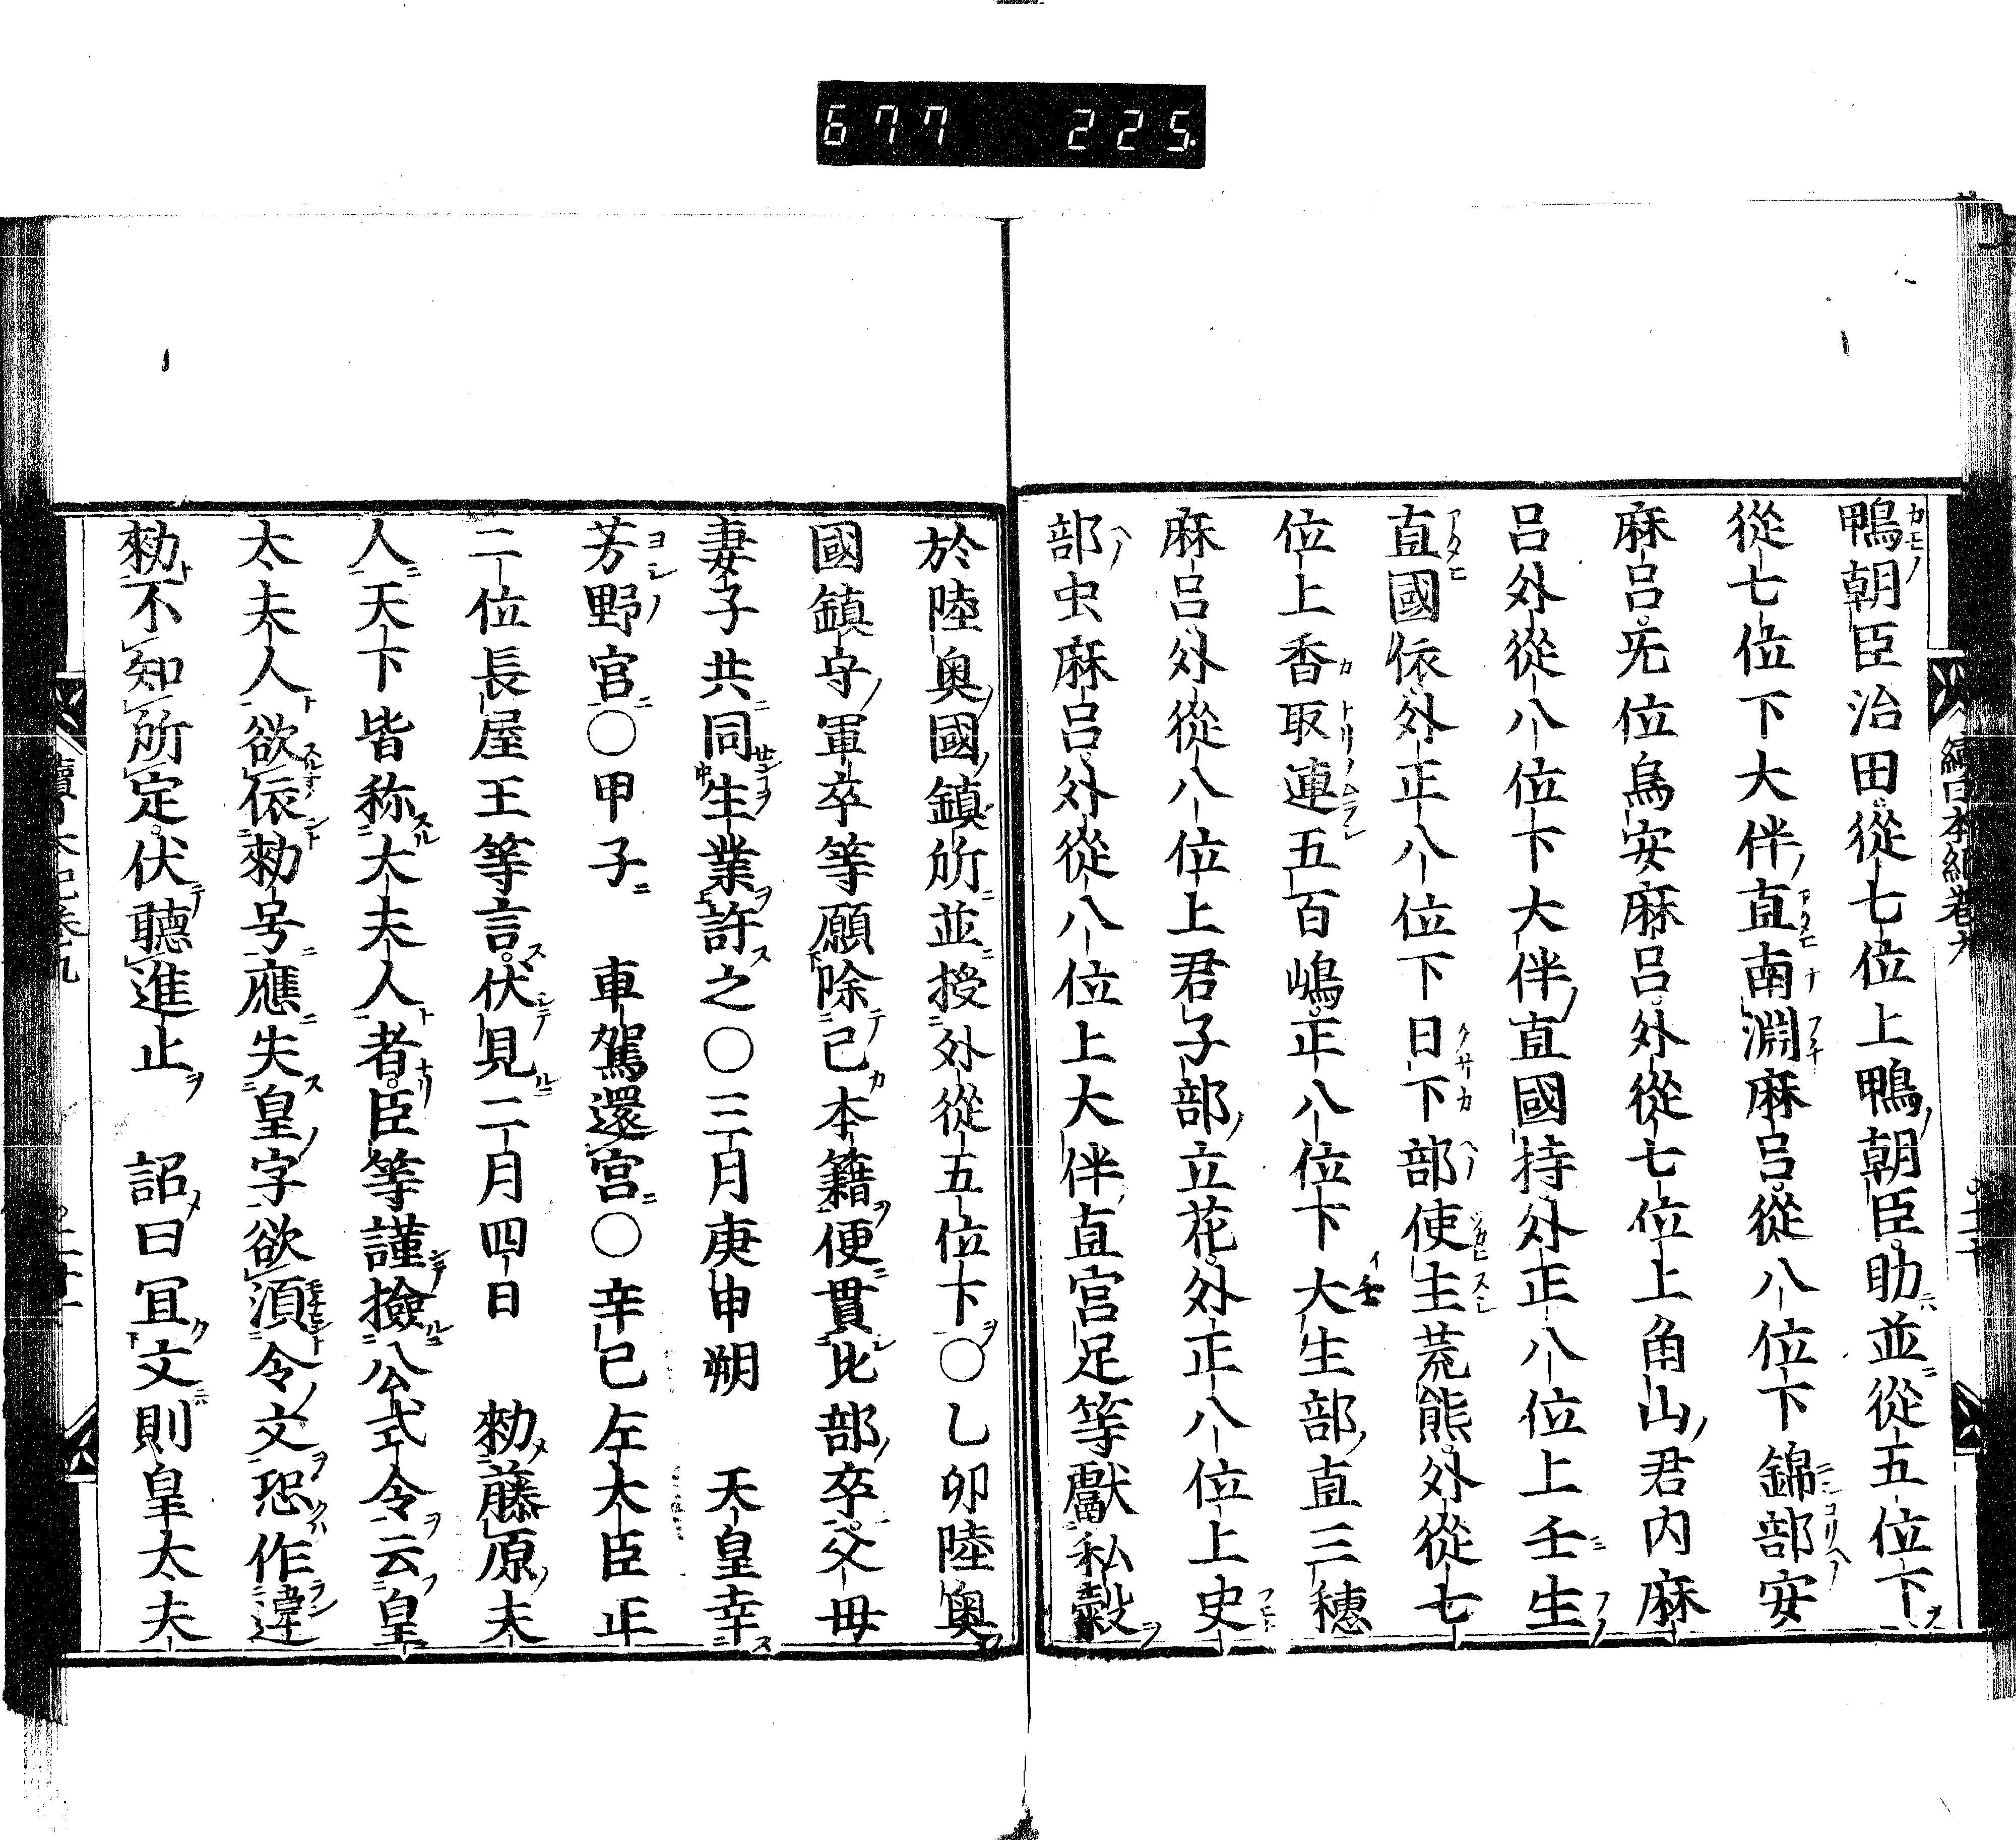 677 225.
續日本紀卷九
鴨朝臣治田從七位上鴨朝臣助並從五位下
從七位下大伴直南淵麻呂從八位下錦部安
麻呂无位烏安麻呂外從七位上角山君内麻
呂外從八位下大伴直國持外正八位上壬生
直國依外正八位下日下部使主荒熊外從七
位上香取連五百嶋正八位下大生部直三穗
麻呂外從八位上君子部立花外正八位上史
部虫麻呂外從八位上大伴直宮足等獻私穀
於陸奥國鎮所並授外從五位下○乙卯陸奥
國鎮守軍卒等願除己本籍便貫比部卒父母
妻子共同生業許之○三月庚申朔 天皇幸
芳野宮○甲子 車駕還宮○辛巳左大臣正
二位長屋王等言伏見二月四日 勑藤原夫
人天下皆称大夫人者臣等謹撿公式令云皇
太夫人欲依勑号應失皇字欲湏令文恐作違
勑不知所定伏聽進止 詔曰冝文則皇太夫